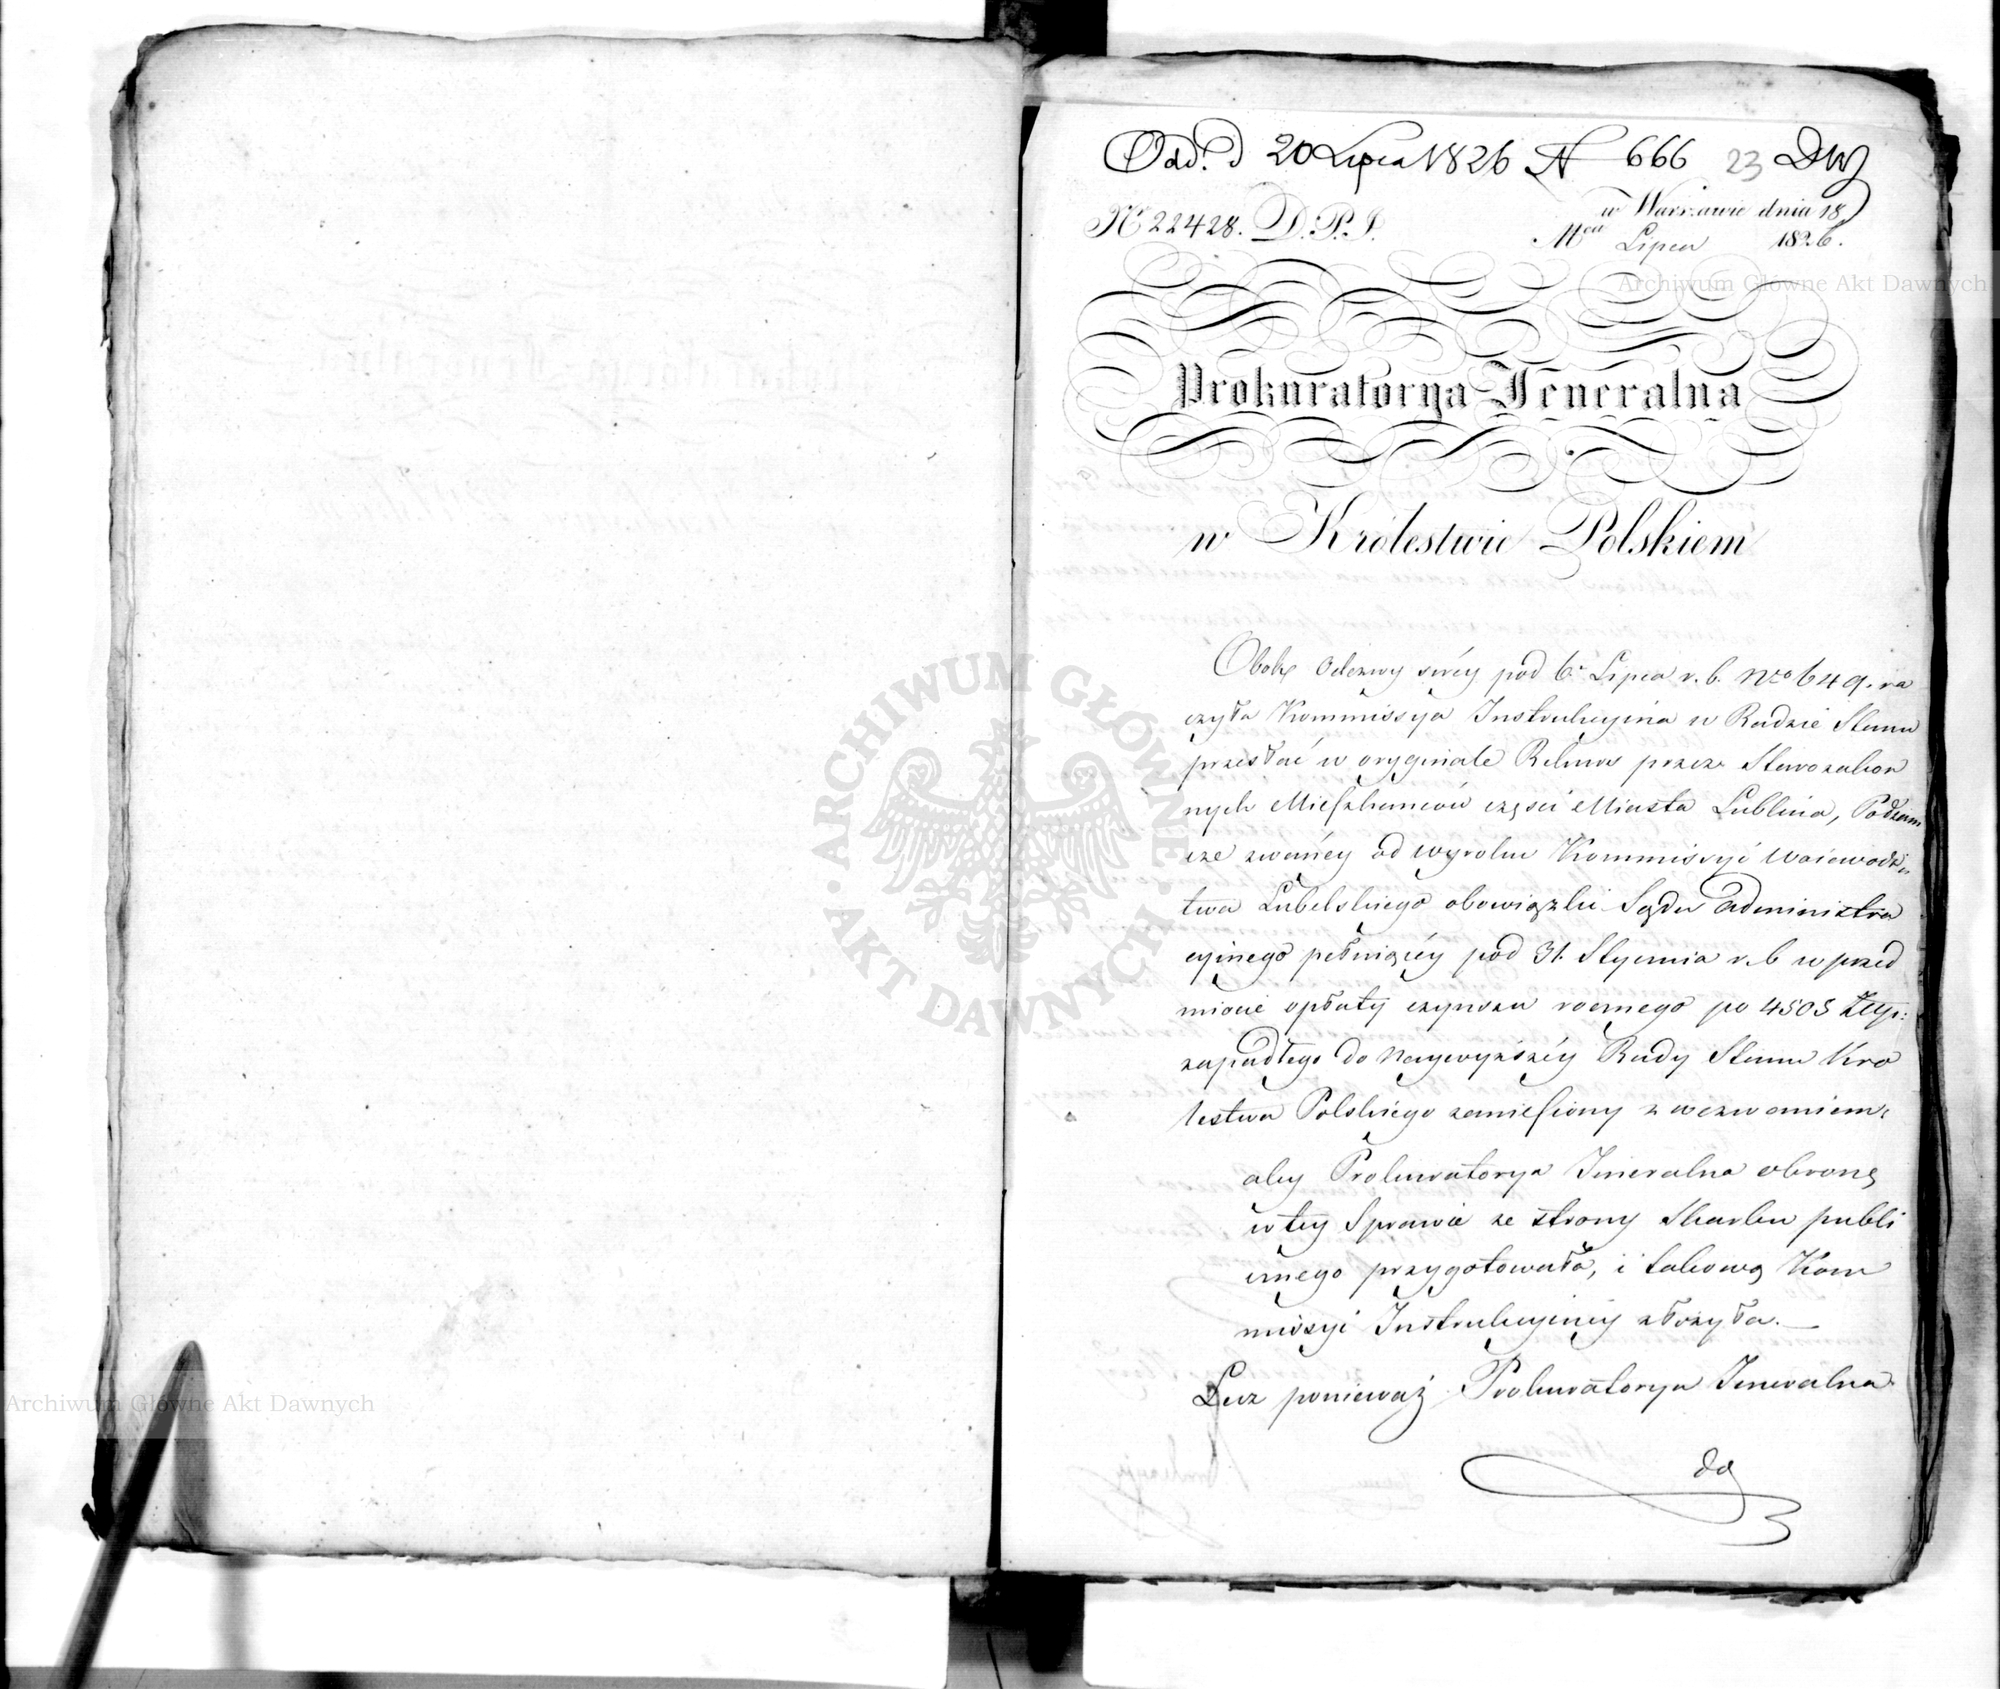 Odd. d 20 Lipca 1826 N 666 23 DW
w Warszawie dnia 18
N 22428. D. P. J.
Mca Lipca 1826.
Archiwum Główne Akt Dawnych
Prokuratorya Jeneralna
w Królestwie Polskiem
Obok Odezwy swéy pod 6. Lipca r. b. Nro 649. ra
czyła Kommissya Instrukcyina w Radzie Stanu
przesłać w oryginale Rekurs przez Starozakon
nych Mieszkańców części Miasta Lublina, Podzam
cze zwanéy od wyroku Kommissyi Woiewodz
twa Lubelskiego obowiązki Sądu administra
cyinego pełniącéy pod 31. Stycznia r. b w przed
miocie opłaty czynszu rocznego po 4505 Złp:
zapadłego do Naywyższéy Rady Stanu Kró
lestwa Polskiego zaniesiony z wezwaniem,
aby Prokuratorya Jeneralna obronę
w téy Sprawie ze strony Skarbu publi
cznego przygotowała, i takową Kom
missyi Instrukcyinéy złożyła.—
Lecz ponieważ Prokuratorya Jeneralna
ARCHIWUM GŁÓWNE
AKT DAWNYCH
Archiwum Główne Akt Dawnych